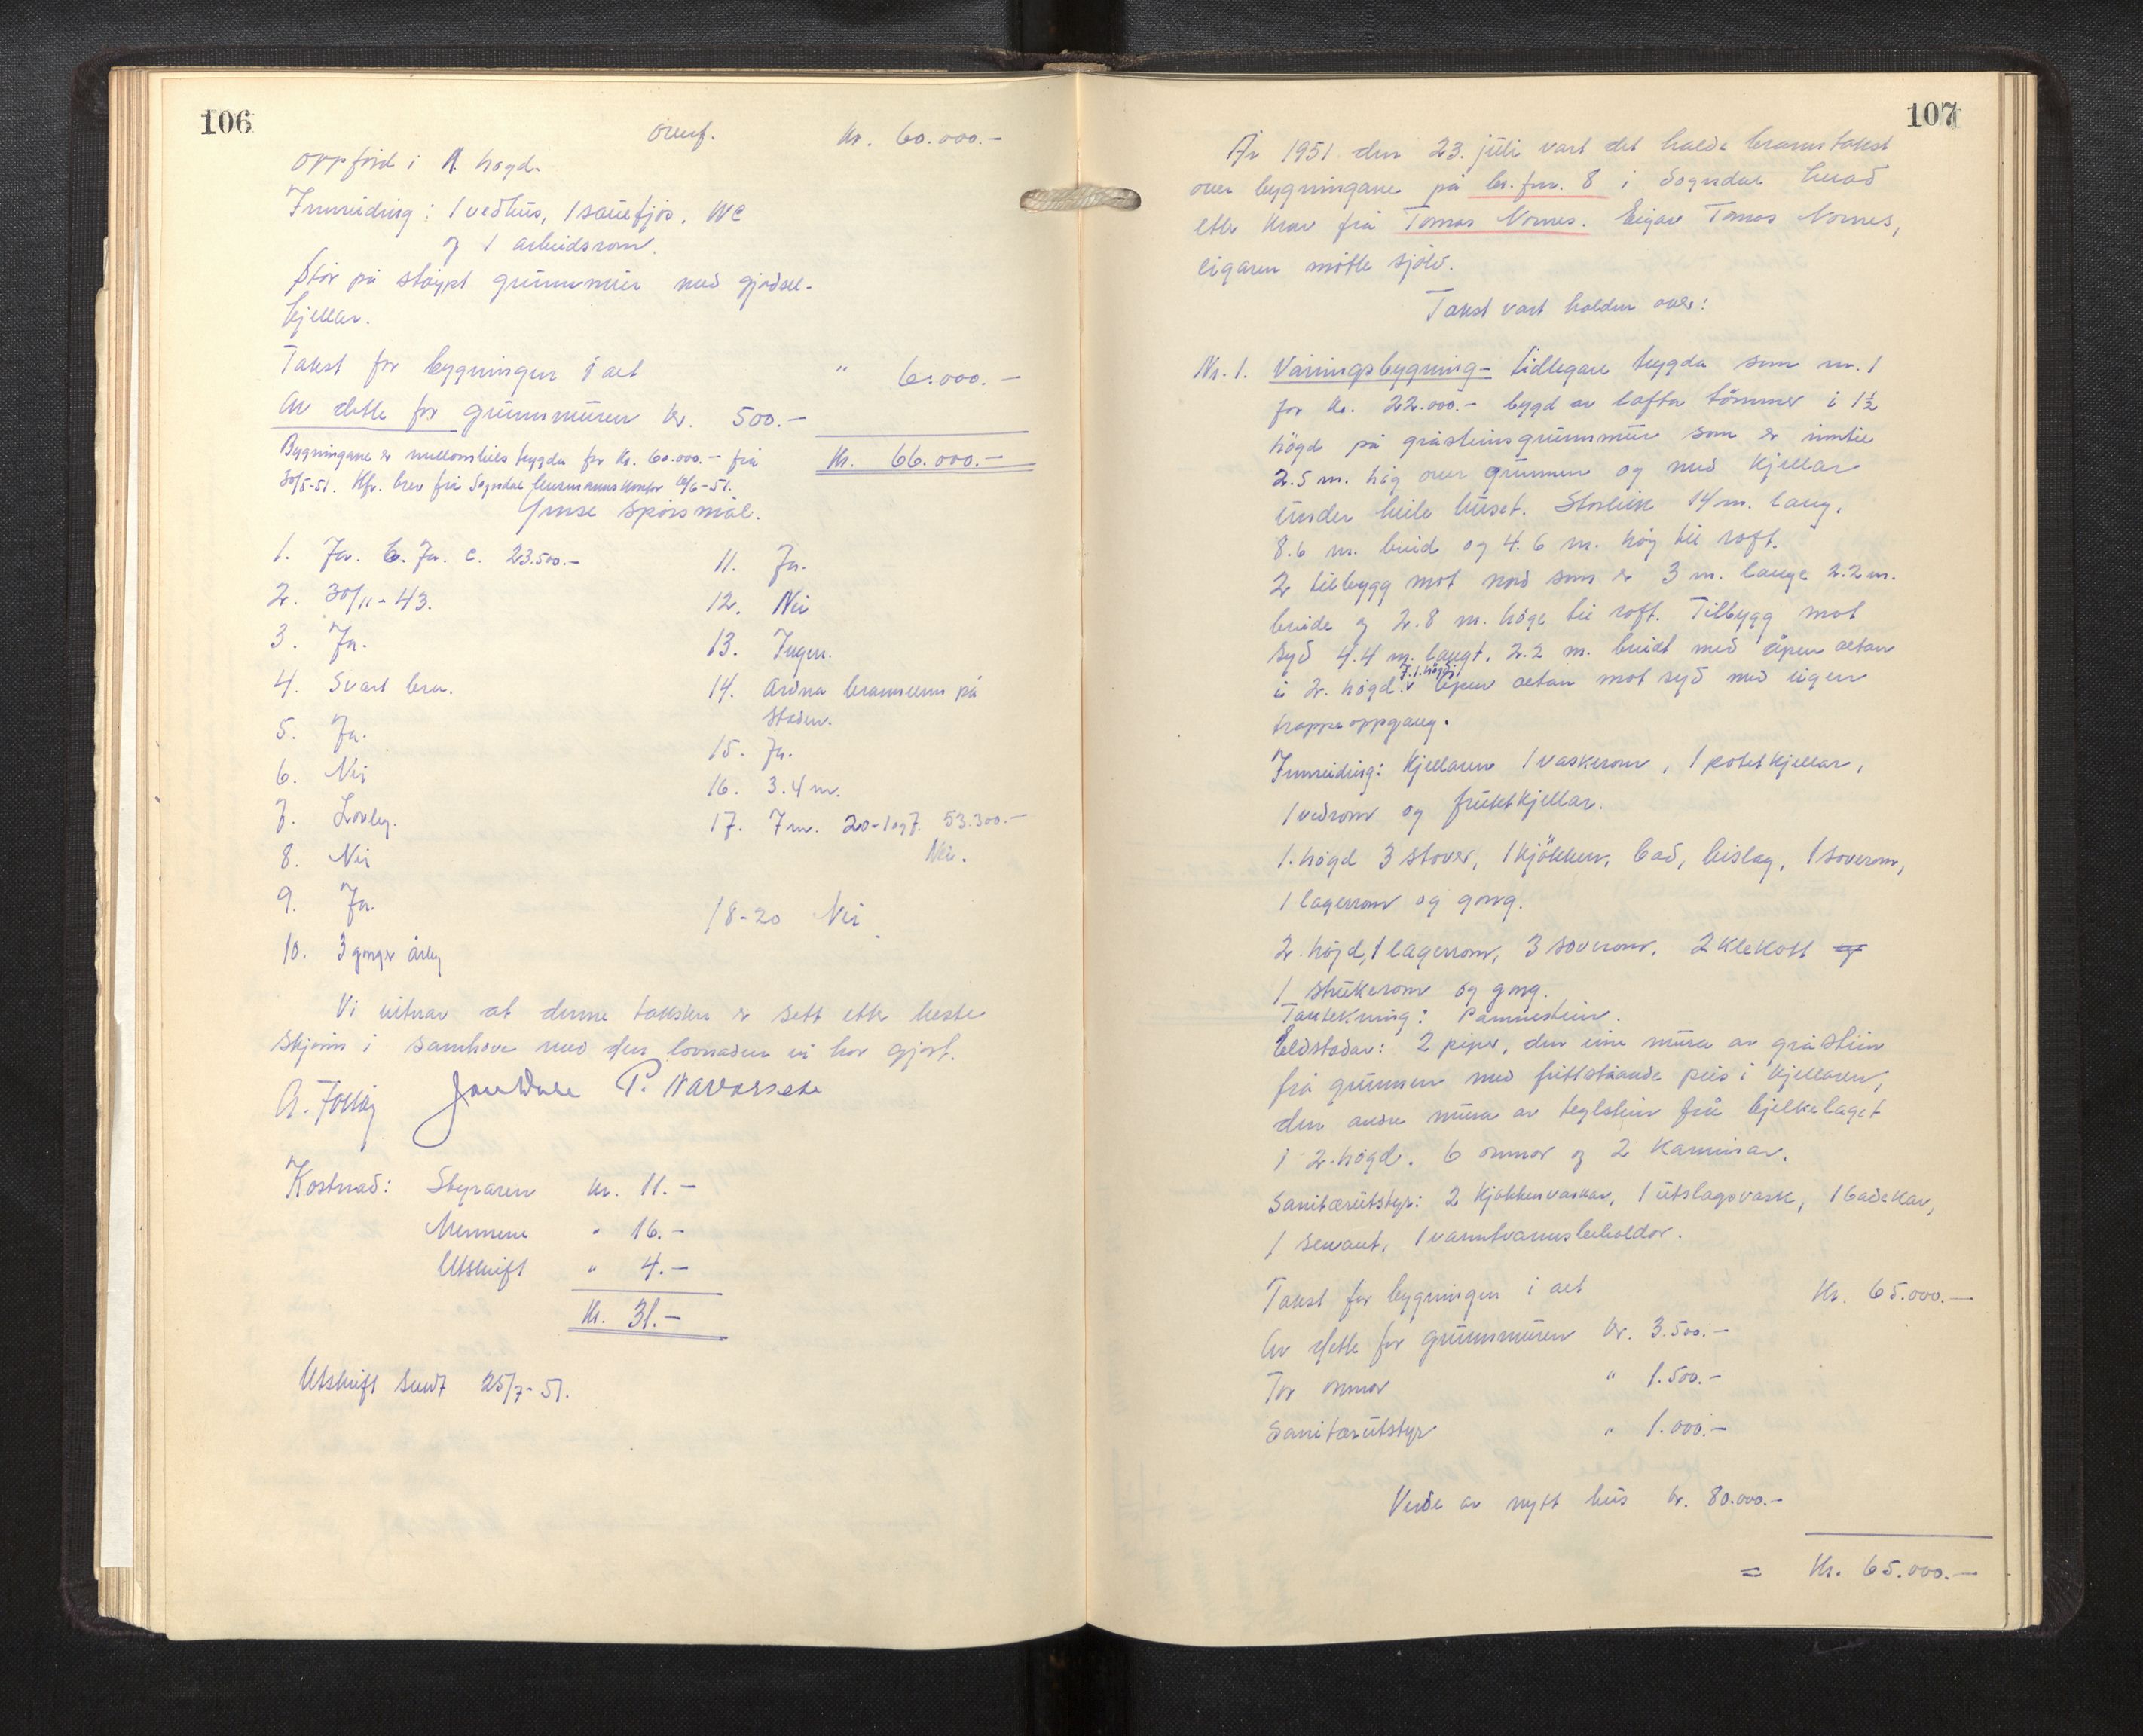 106
Overf. Kr. 60.000.-
oppförd i 1 högd.
Innreiding: 1 vedhus, 1 sauefjös, WC
og 1 arbeidsrom.
Står på stöypt grunnmur med gjödsel-
kjellar.
Takst for bygningen i alt " 6.000.-
Av dette for grunnmuren kr. 500.-
Bygningane er mellombils trygda for kr. 60.000.- frå
Kr. 66.000.-
30/5-51. Kfr. brev frå Sogndal lensmannskontor
Ymse spörsmål.
1. Ja. b. Ja. c. 23.500.-
2. 30/11-43.
3. Ja.
4. Svært bra.
5. Ja.
6. Nei
7. Lovleg.
8. Nei
9. Ja.
10. 3 gonger årleg
11. Ja.
12. Nei
13. Ingen.
14. Ordna brannvern på
staden.
15. Ja.
16. 3.4 m.
17. 7 m. 20-1 og 7. 53.300.-
Nei.
18-20 Nei
Vi vitnar at denne taksten er sett etter beste
skjönn i samhöve med den lovnaden vi har gjort.
P. Navarsete
Kostnad: Styraren kr. 11.-
Mennene " 16.-
Utskrift " 4.-
Kr. 31.-
Utskrift sendt 25/7-51.
107
År 1951 den 23. juli vart det halde branntakst
over bygningane på br.fnr. 8 i Sogndal herad
etter krav frå Tomas Nornes. Eigar Tomas Nornes,
eigaren mötte sjölv.
Takst vart halden over:
Nr. 1. Våningsbygning - tidlegare trygda som nr. 1
for kr. 22.000.- bygd av lafta tömmer i 1½
högd på gråsteinsgrunnmur som er inntil
2.5 m. hög over grunnen og med kjellar
under heile huset. Storleik 14 m. lang,
8.6 m. breid og 4.6 m. hög til roft.
2 tilbygg mot nord som er 3 m. lange 2.2 m.
breide og 2.8 m. höge til roft. Tilbygg mot
syd 4.4 m. langt, 2.2 m. breidt med åpen altan
i 2. högd. I 1. högd åpen altan mot syd med eigen
trappeoppgang.
Innreiding: Kjellaren 1 vaskerom, 1 potetkjellar,
1 vedrom og fruktkjellar.
1. högd 3 stover, 1 kjökken, bad, bislag, 1 soverom,
1 lagerrom og gong.
2. högd, 1 lagerrom, 3 soverom, 2 klekott og
1 strykerom og gong.
Taktekning: Pannestein.
Eldstadar: 2 piper, den eine mura av gråstein
frå grunnen med frittståande peis i kjellaren,
den andre mura av teglstein frå bjelkelaget
i 2. högd. 6 omnar og 2 kaminar.
Sanitærutstyr: 2 kjökkenvaskar, 1 utslagsvask, 1 badekar,
1 servant, 1 varmtvannsbeholdar.
Takst for bygningen i alt Kr. 65.000.-
Av dette for grunnmuren kr. 3.500.-
For omnar " 1.500.-
Sanitærutstyr " 1.000.-
Verde av nytt hus kr. 80.000.-
= Kr. 65.000.-